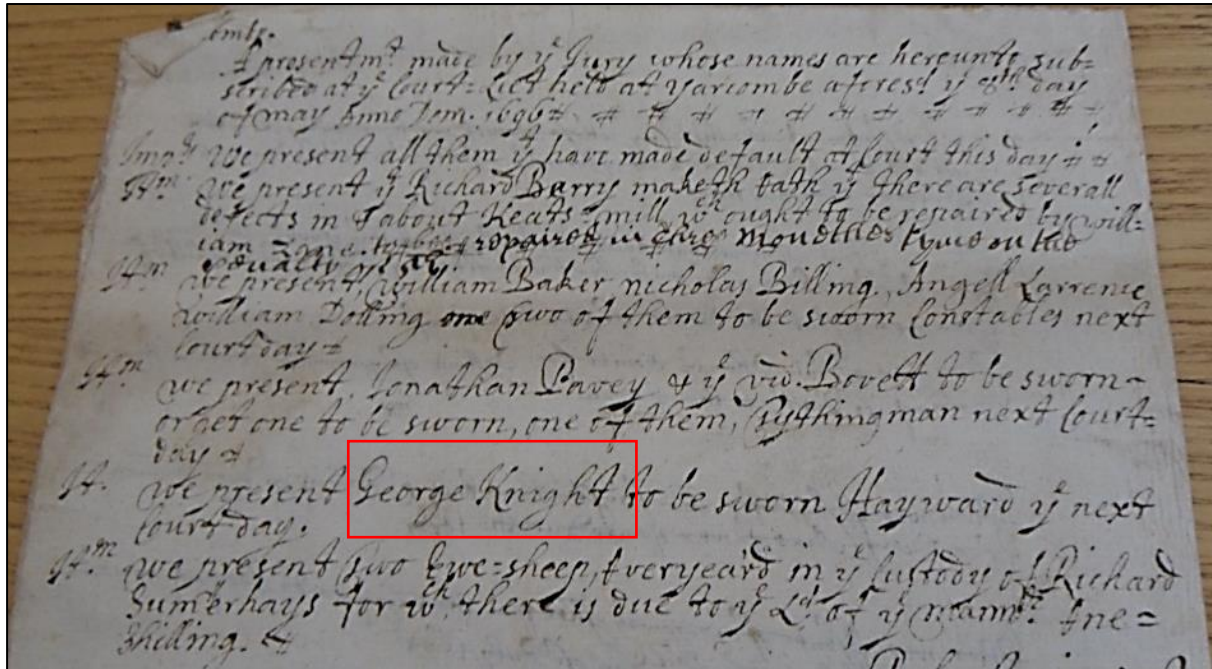 A presentmt. made by ye Jury whose names are hereunto sub=
scribed at ye Court=Leet held at Yarcombe aforesd. ye 8th day
of may Anno Dom. 1696 # # # # # # # # #
Imprs. We present all them yt have made default at Court this day # #
Itm. We present yt Richard Barry maketh oath yt there are severall
defects in & about Keats=mill, wch ought to be repaired by will=
iam to be repaired in three mouethes tyme on the
penalty
Itm we present, William Baker, nicholas Billing, Angell Larrence
William Dolling one two of them to be sworn Constables next
Court day=
Itm we present, Jonathan Pavey & ye vid. Bovett to be sworn=
or get one to be sworn, one of them, Tythingman next Court=
day #
It. we present George Knight to be sworn Hayward ye next
Court day.
Itm we present two Ewe=sheep, & veryeard in ye Custody of Richard
Sumerhays for wch there is due to ye Ld. of ye mannr. one=
Shilling. #